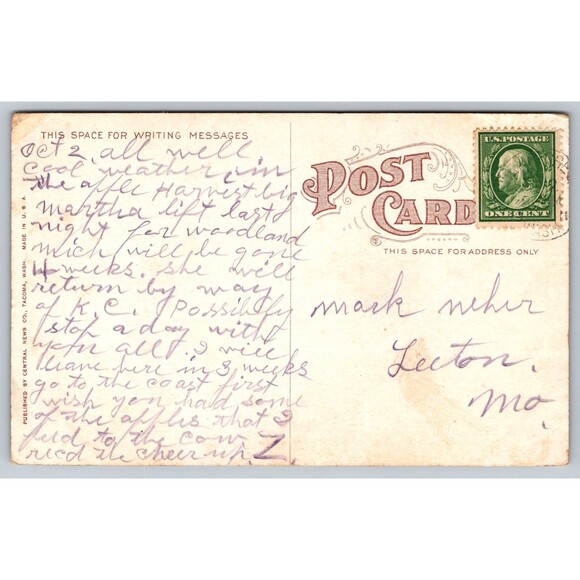 THIS SPACE FOR WRITING MESSAGES
Oct 2, all well
cool weather, in
the apple Harvest big
martha lift last
night for woodland
mich will be gone
4 weeks. she will
return by way
of K.C. Possibily
stop a day with
you all I will
leave here in 3 weeks
go to the coast first
wish you had some
of the apples that I
feed to the cow
recd the cheer up. Z.
PUBLISHED BY CENTRAL NEWS CO., TACOMA, WASH. MADE IN U.S.A.
POST CARD
THIS SPACE FOR ADDRESS ONLY
U.S. POSTAGE
ONE CENT
mark neher
Leeton,
Mo.